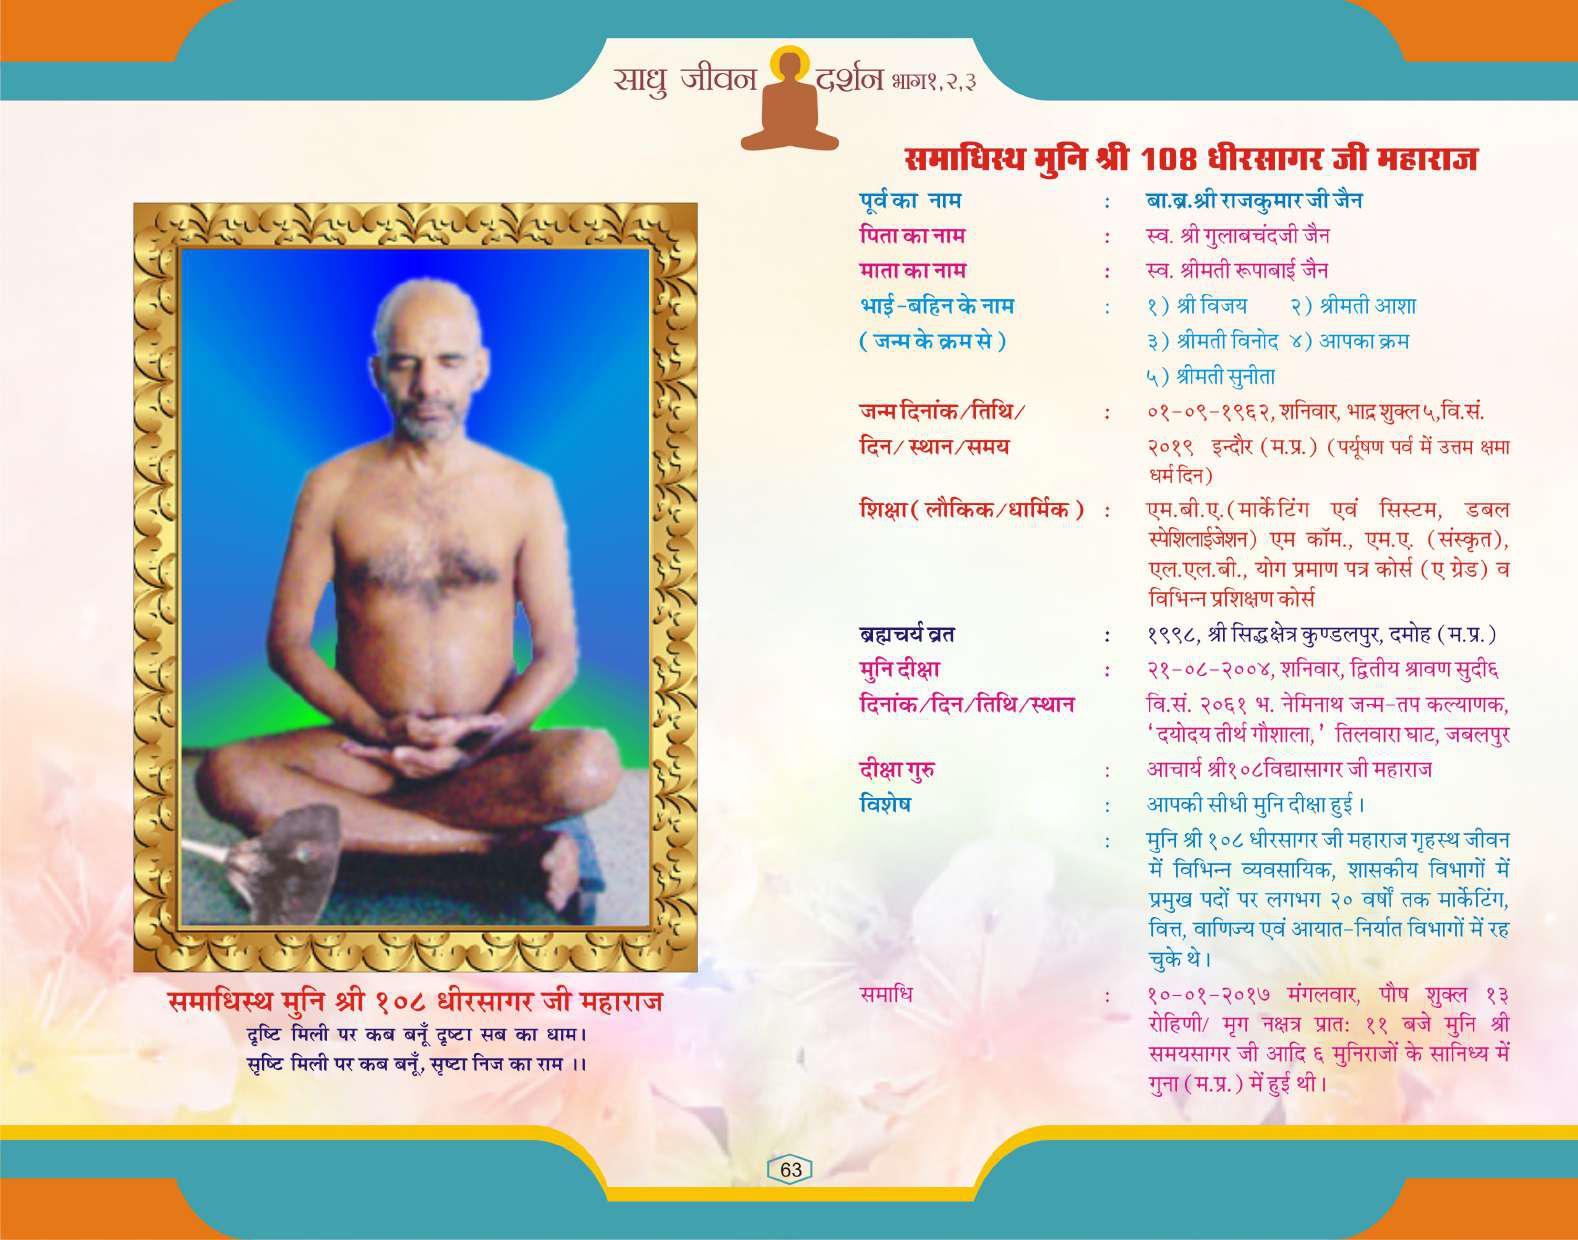 साधु जीवन दर्शन भाग१,२,३
समाधिस्थ मुनि श्री 108 धीरसागर जी महाराज
पूर्व का नाम : बा.ब्र.श्री राजकुमार जी जैन
पिता का नाम : स्व. श्री गुलाबचंदजी जैन
माता का नाम : स्व. श्रीमती रूपाबाई जैन
भाई-बहिन के नाम : १) श्री विजय २) श्रीमती आशा
( जन्म के क्रम से ) ३) श्रीमती विनोद ४) आपका क्रम
५) श्रीमती सुनीता
जन्म दिनांक/तिथि/ : ०१-०९-१९६२, शनिवार, भाद्र शुक्ल ५,वि.सं.
दिन/ स्थान/समय २०१९ इन्दौर (म.प्र.) (पर्यूषण पर्व में उत्तम क्षमा
धर्म दिन)
शिक्षा( लौकिक/धार्मिक ) : एम.बी.ए.(मार्केटिंग एवं सिस्टम, डबल
स्पेशिलाईजेशन) एम कॉम., एम.ए. (संस्कृत),
एल.एल.बी., योग प्रमाण पत्र कोर्स (ए ग्रेड) व
विभिन्न प्रशिक्षण कोर्स
ब्रह्मचर्य व्रत : १९९८, श्री सिद्धक्षेत्र कुण्डलपुर, दमोह (म.प्र.)
मुनि दीक्षा : २१-०८-२००४, शनिवार, द्वितीय श्रावण सुदी६
दिनांक/दिन/तिथि/स्थान वि.सं. २०६१ भ. नेमिनाथ जन्म-तप कल्याणक,
‘दयोदय तीर्थ गौशाला,’ तिलवारा घाट, जबलपुर
दीक्षा गुरु : आचार्य श्री१०८विद्यासागर जी महाराज
विशेष : आपकी सीधी मुनि दीक्षा हुई।
: मुनि श्री १०८ धीरसागर जी महाराज गृहस्थ जीवन
में विभिन्न व्यवसायिक, शासकीय विभागों में
प्रमुख पदों पर लगभग २० वर्षों तक मार्केटिंग,
वित्त, वाणिज्य एवं आयात-निर्यात विभागों में रह
चुके थे।
समाधि : १०-०१-२०१७ मंगलवार, पौष शुक्ल १३
रोहिणी/ मृग नक्षत्र प्रात: ११ बजे मुनि श्री
समयसागर जी आदि ६ मुनिराजों के सानिध्य में
गुना (म.प्र.) में हुई थी।
समाधिस्थ मुनि श्री १०८ धीरसागर जी महाराज
दृष्टि मिली पर कब बनूँ दृष्टा सब का धाम।
सृष्टि मिली पर कब बनूँ, सृष्टा निज का राम ।।
63